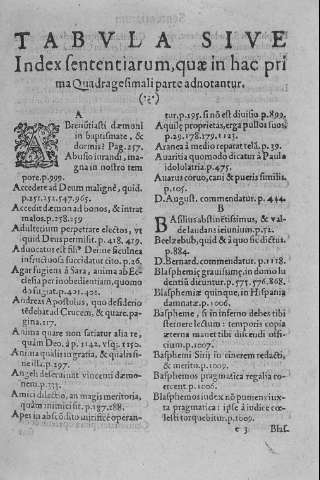 TABVLA SIVE
Index sententiarum, quæ in hac pri
ma Quadragesimali parte adnotantur.
A
ABrenūtiasti dæmoni
in baptismate, &
dormis? Pag. 257.
Abusio iurandi, ma-
gna in nostro tem
pore. p. 999.
Accedere ad Deum malignè, quid.
p. 251. 252. 547. 965.
Accedit dæmon ad bonos, & intrat
malos. p. 258. 259
Adulterium perpetrare electos, vt
quid Deus permisit. p. 418. 429.
Aduocatus est filiꝰ Dei ne si cul nea
insructuosa succidatur cito. p. 26.
Agar fugiens à Sara, anima ab Ec-
clesia per inobedientiam, quomo
do fugiat. p. 421. 402.
Andreas Apostolus, quo desiderio
tēdebat ad Crucem, & quare. pa-
gina. 117.
Anima quare non satiatur alia re,
quàm Deo. à p. 1142. vsq; 1150.
Anima qualis in gratia, & qualis si-
ne illa. p. 297.
Angeli deseruniāt vincenti dæmo-
nem. p. 333.
Amici dilectio, an magis meritoria,
quàm inimici sit. p. 187. 188.
Apes in abscōdito nitūtē operan-
tur. p. 195. si nō est diuisio p. 899.
Aquilę proprietas, erga pullos suos.
p. 29. 178. 179. 1123.
Aranea à medio reparat telā. p. 39.
Auaritia quomodo dicatur à Paulo
idololatria. p. 475.
Auarus coruo, cani & pueris similis.
p. 105.
D. August. commendatur. p. 434.
B
BAsilius abstinētissimus, & val-
de laudans ieiunium. p. 52.
Beelzebub, quid & à quo sic dictus.
p. 884.
D. Bernard. commendatur. p. 1128.
Blasphemię grauissimę, in domo lu-
dentiū dicuntur. p. 775. 776. 868.
Blasphemiæ quinque, in Hispania
damnatæ. p. 1006.
Baspheme, si in inferno debes tibi
sternere lectum: temporis copia
æterna manet tibi discendi offi-
cium. p. 1007.
Basphemi Sirij in cinerem redacti,
& merito. p. 1009.
Basphemos pragmatica regalis co-
ercent. p. 1006.
Blasphemos iudex nō punens iux-
ta pragmatica: ipse à iudice coe-
lesti torquebitur. p. 1009.
¢ 3 Blas-